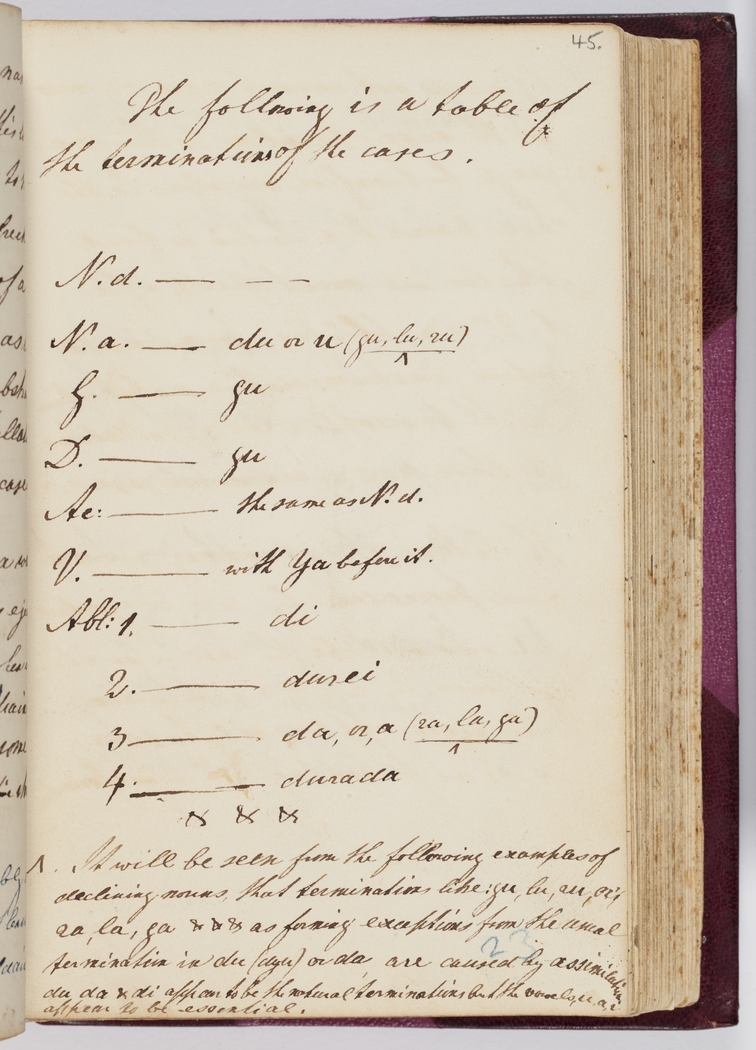 45.
The following is a table of
the terminations of the cases.
N. d. — — —
N. a. — du or u (gu, lu, ru)
^
G. — gu
D. — gu
Ac: — the same as N. d.
V. — with Ya before it.
Abl: 1. — di
2. — durei
3 — da, or, a (ra, la, ga)
^
4. — durada
^. It will be seen from the following examples of
declining nouns, that terminations like: gu, lu, ru,
ra, la, ga as forming exceptions from the usual
termination in du (dyu) or da, are caused by assimilation
du da & di appear to be the natural terminations but the vowels, u, a, i
appear to be essential.